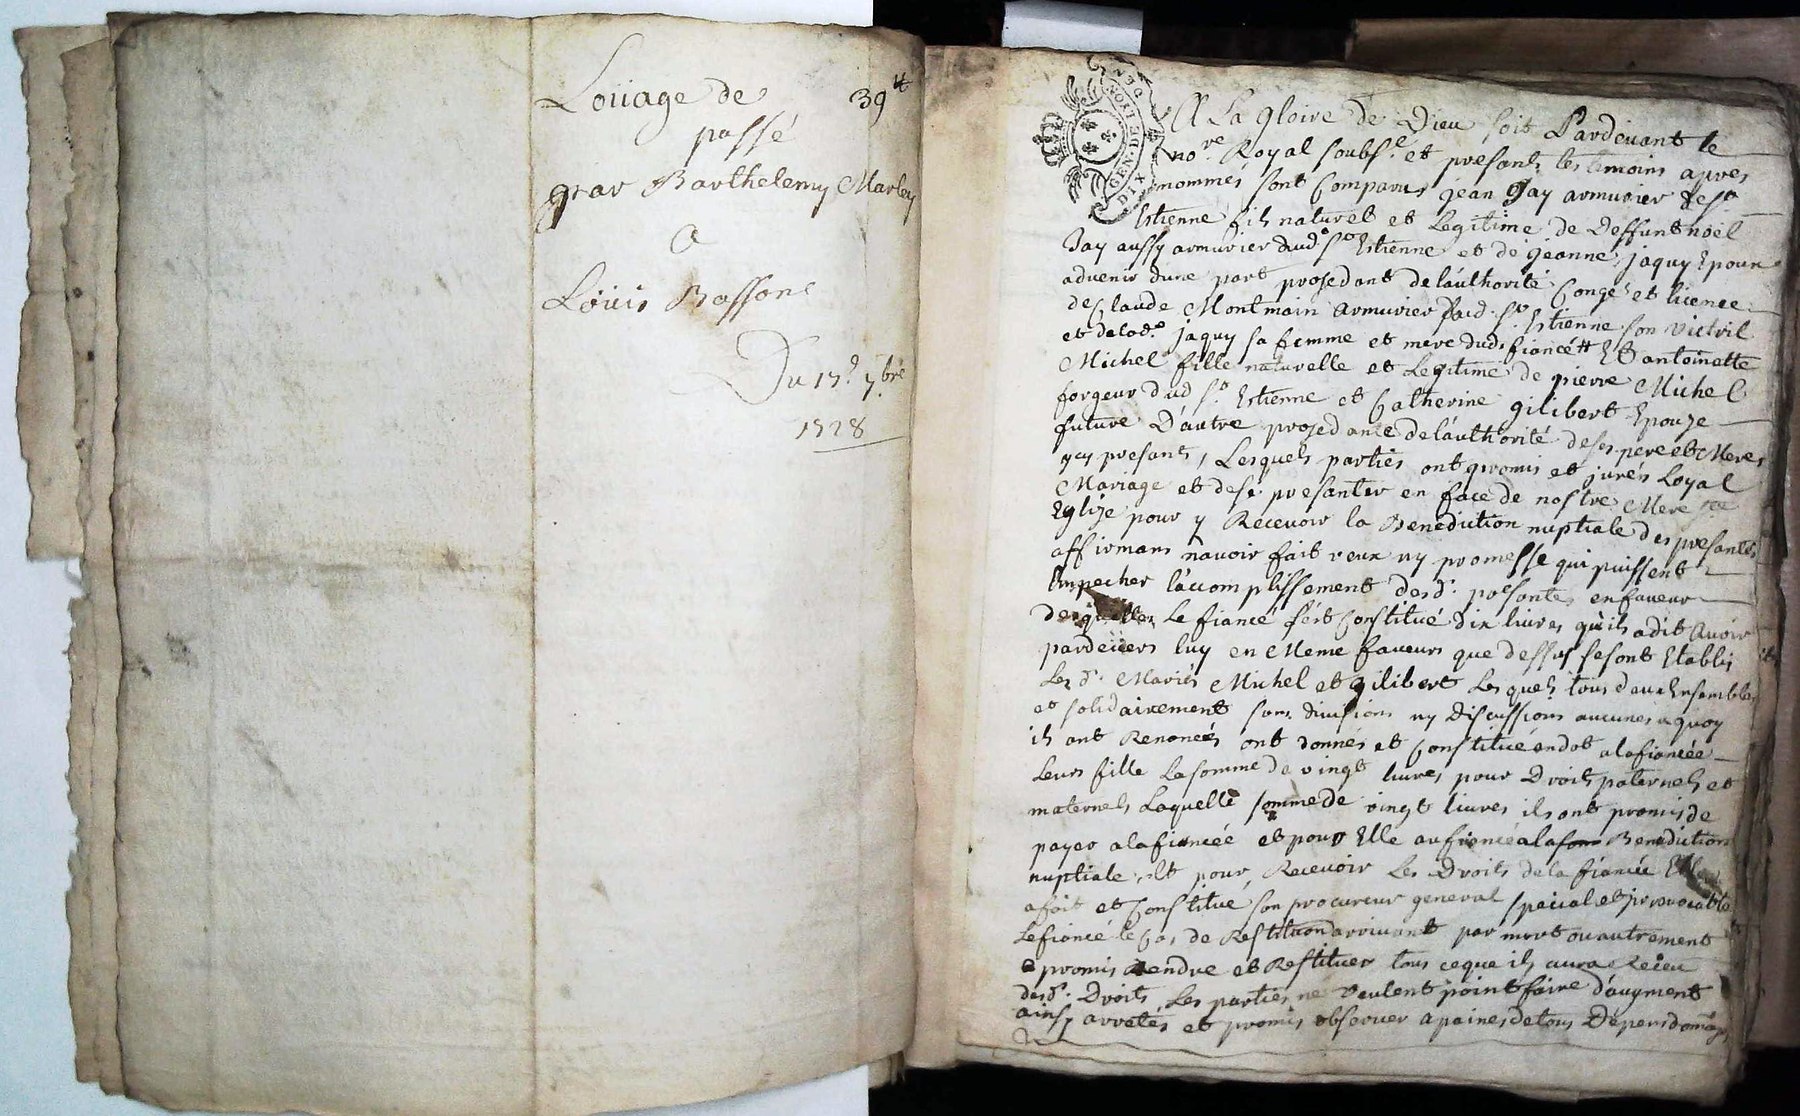 Loüage de 39tt
passé
par Barthelemy Marley
A
Loüis Bassone
Du 17e 7bre
1728
GEN. DE LYON
DIX DEN
A La gloire de Dieu soit Pardevant le
nore Royal soubse et presants les temoins apres
nommés sont Comparus jean Jay armurier de St
Estienne fils naturel et Legitime de deffunt noel
Jay aussy armurier dud St Estienne et de jeanne jaquy Epoux
advenir dune part prosedant de lauthorité Congé et licence
de Claude Montmain armurier dud. St Estienne son
et de lad. jaquy sa femme et mere dud. fiancé Et antoinette
Michel fille naturelle et Legitime de pierre Michel
forgeur dud St Estienne et Catherine gilibert Epouze
future D'autre prosedante de lauthorité de ses pere et Mere
ycy presants, Lesquels parties ont promis et jurés Loyal
Mariage et de se presanter en face de nostre Mere Ste
Eglize pour y Recevoir la Benediction nuptiale des presantes
affirmans navoir fait veux ny promesse qui puissent
Empecher lácomplissement desd. presantes en faveur
desquelles Le fiancé sést Constitué dix livres quils adit Avoir
pardevers luy en Meme faveurs que dessus se sont Etablis
Les d. Mariés Michel et gilibert Les quels tous deux Ensembles
et solidairement sans divisions ny Discussions aucunes a quoy
ils ont Renoncés ont donnés et Constitué en dot a la fiancée
Leurs fille La somme de vingt livres pour Droits paternels et
maternels Laquelle somme de vingt livres ils ont promis de
payer a la fiancée et pour Elle au fiancé a la Benediction
nuptiale, Et pour Recevoir Les Droits de la fiancée Elle
a fait et Constitué son procureur general special et irrevocable
Le fiancé le Cas de Restitution arrivant par mort ou autrement
a promis Rendre et Restituer tous ce que ils aura Receu
desd. Droits, Les parties ne Veulent point faire d'augment
ainsy arretés et promis observer a paines de tous Depens domages